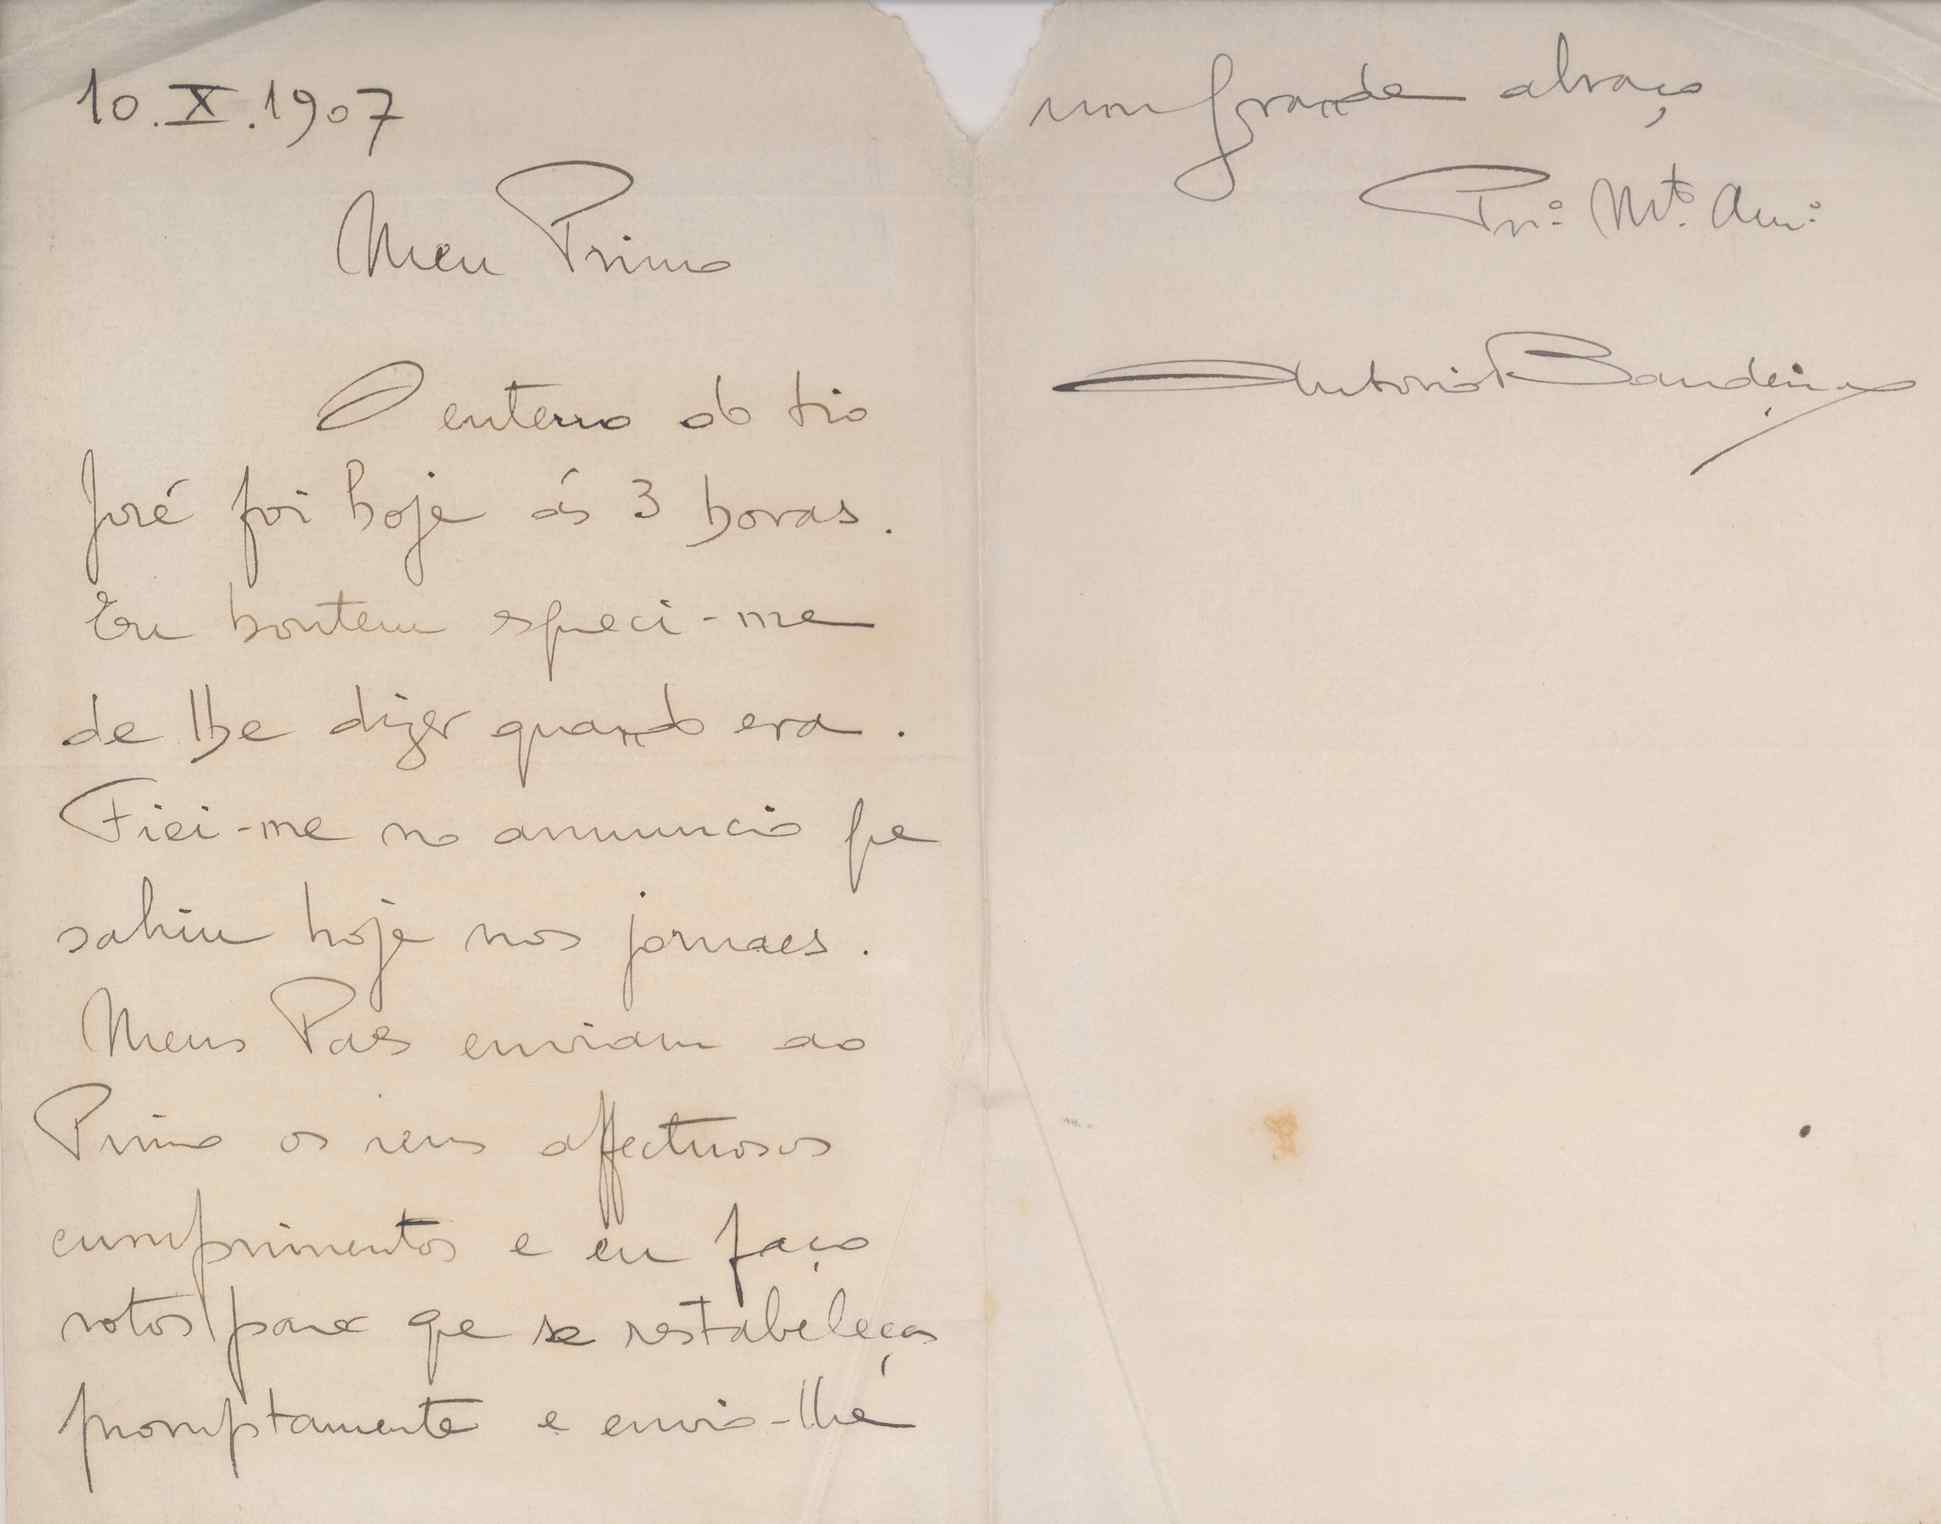 10.X.1907
Meu Primo
O enterro do tio
José foi hoje ás 3 horas.
Eu hontem esqueci-me
de lhe dizer quando era.
Fiei-me no annuncio que
sahiu hoje nos jornaes.
Meus Paes enviam ao
Primo os seus affectuosos
cumprimentos e eu faço
votos para que se restabeleça
promptamente e envio-lhe
um grande abraço
Pri.º Mt.º Am.º
Antonio Bandeira